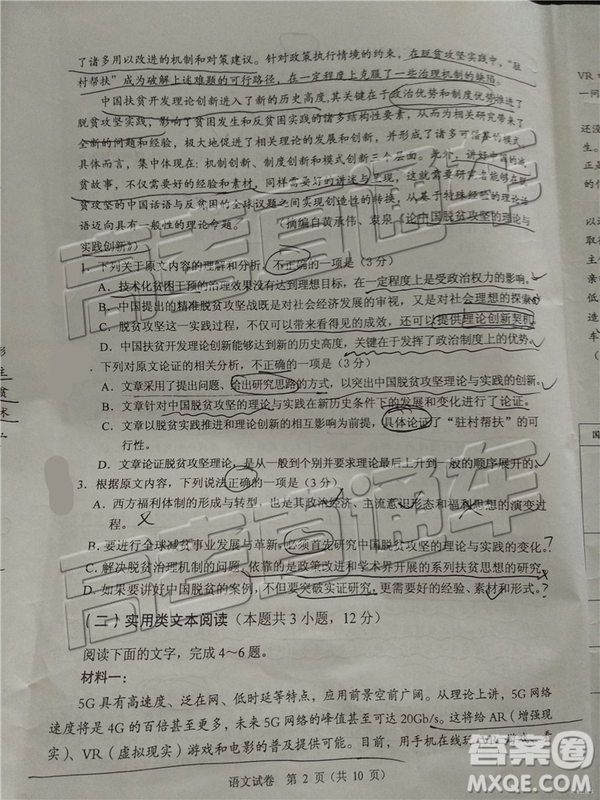 了诸多用以改进的机制和对策建议。针对政策执行情境的约束，在脱贫攻坚实践中，“驻
村帮扶”成为破解上述难题的可行路径，在一定程度上克服了一些治理机制的缺陷。
中国扶贫开发理论创新进入了新的历史高度，其关键在于政治优势和制度优势推进了
脱贫攻坚实践，影响了贫困发生和反贫困实践的诸多结构性要素，从而为相关研究带来了
全新的问题和经验，极大地促进了相关理论的发展和创新，并形成了诸多可借鉴的模式。
具体而言，集中体现在：机制创新、制度创新和模式创新三个层面。此外，讲好中国的减
贫故事，不仅仅需要好的经验和素材，同样需要好的讲述与呈现，这就需要研究者能够在脱
贫攻坚的中国话语与反贫困的全球议题之间实现创造性的转换，从基于特殊经验的理论
话语迈向具有一般性的理论命题。（摘编自黄承伟、袁泉《论中国脱贫攻坚的理论与
实践创新》）
1. 下列关于原文内容的理解和分析，不正确的一项是（3 分）
A. 技术化贫困干预的治理效果没有达到理想目标，在一定程度上是受政治权力的影响。
B. 中国提出的精准脱贫攻坚战既是对社会经济发展的审视，又是对社会理想的探索。
C. 脱贫攻坚这一实践过程，不仅可以带来看得见的成效，还可以提供理论创新契机。
D. 中国扶贫开发理论创新能够达到新的历史高度，关键在于发挥了政治制度上的优势。
. 下列对原文论证的相关分析，不正确的一项是（3 分）
A. 文章采用了提出问题、给出研究思路的方式，以突出中国脱贫攻坚的理论与实践的创新。
B. 文章针对中国脱贫攻坚的理论与实践在新历史条件下的发展和变化进行了论证。
C. 文章以脱贫实践推进和理论创新的相互影响为前提，具体论证了“驻村帮扶”的可
行性。
D. 文章论证脱贫攻坚理论，是从一般到个别并要求理论最后上升到一般的顺序展开的。
3. 根据原文内容，下列说法正确的一项是（3 分）
A. 西方福利体制的形成与转型，也是其政治经济、主流意识形态和福利思想的演变过
程。
B. 要进行全球减贫事业发展与革新，必须首先研究中国脱贫攻坚的理论与实践的变化。
C. 解决脱贫治理机制的问题，依靠的是政策改进和学术界开展的系列扶贫思想的研究。
D. 如果要讲好中国脱贫的案例，不但要突破实证研究，更需要好的经验、素材和形式。
（二）实用类文本阅读（本题共 3 小题，12 分）
阅读下面的文字，完成 4～6 题。
材料一：
5G 具有高速度、泛在网、低时延等特点，应用前景空前广阔。从理论上讲，5G 网络
速度将是 4G 的百倍甚至更多，未来 5G 网络的峰值甚至可达 20Gb/s。这将给 AR（增强现
实）、VR（虚拟现实）游戏和电影的普及提供可能。目前，用手机在线玩
语文试卷 第 2 页（共 10 页）
高考直通车
高考直通车
答案圈